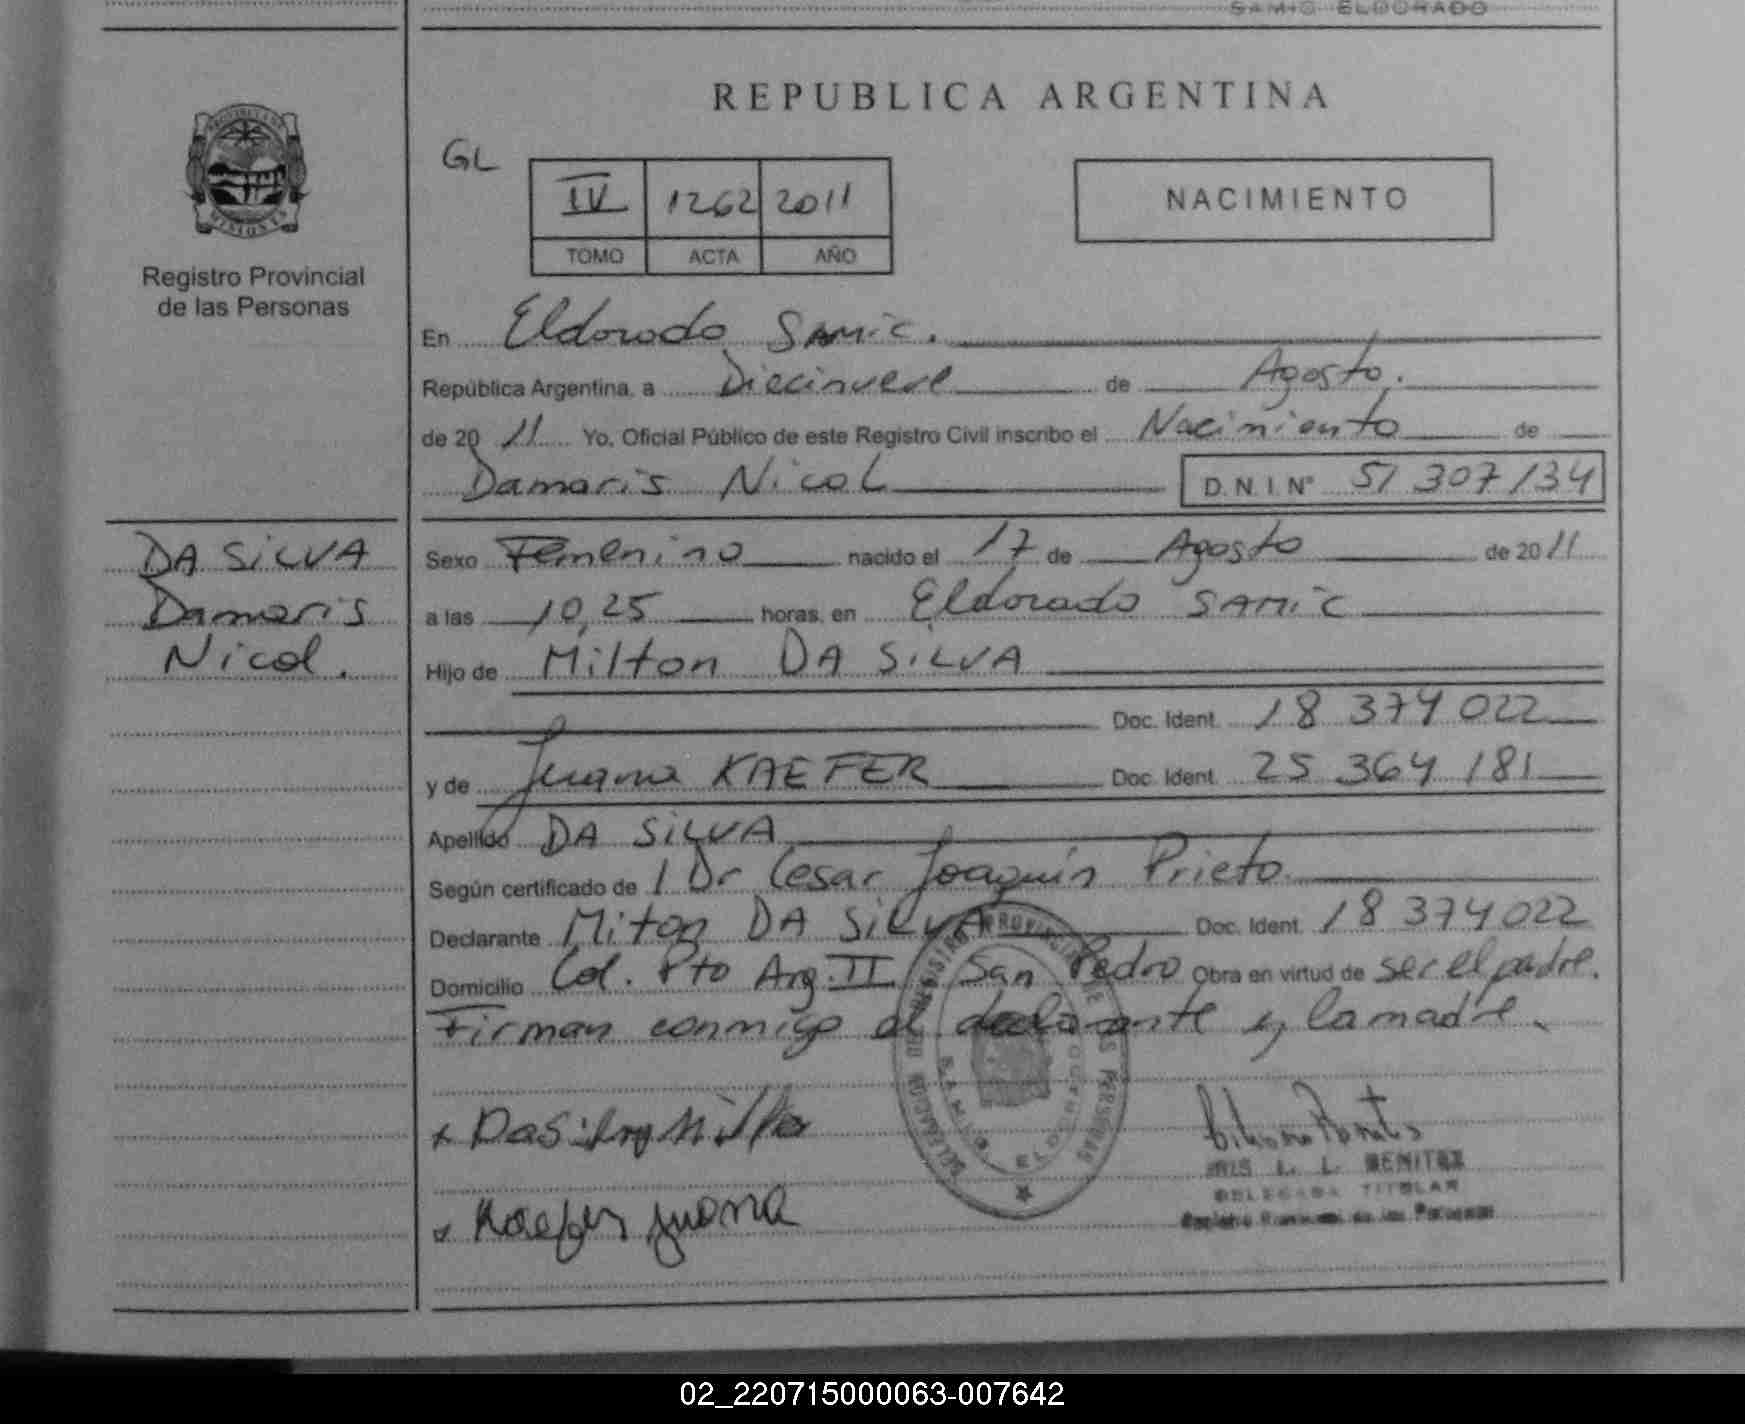 SAMIC ELDORADO
REPUBLICA ARGENTINA
PROVINCIA DE MISIONES
Registro Provincial
de las Personas
GL
IV 1262 2011
TOMO ACTA AÑO
NACIMIENTO
En Eldorado SAMIC.
República Argentina, a Diecinueve de Agosto.
de 20 11 Yo, Oficial Público de este Registro Civil inscribo el Nacimiento de
Damaris Nicol D.N.I. Nº 51 307 134
DA SILVA
Damaris
Nicol.
Sexo Femenino nacido el 17 de Agosto de 20 11
a las 10,25 horas, en Eldorado SAMIC
Hijo de Milton DA SILVA
Doc. Ident. 18 374 022
y de Juana KAEFER Doc. Ident. 25 364 181
Apellido DA SILVA
Según certificado de 1 Dr Cesar Joaquín Prieto
Declarante Miton DA SILVA Doc. Ident. 18 374 022
Domicilio Col. Pto Arg. II San Pedro Obra en virtud de ser el padre.
Firman conmigo el declarante y la madre.
DELEGACION DEL REGISTRO PROVINCIAL DE LAS PERSONAS
x DaSilva Milton
L. L. BENITEZ
DELEGADA TITULAR
Registro Provincial de las Personas
x Kaefer Juana
02_220715000063-007642